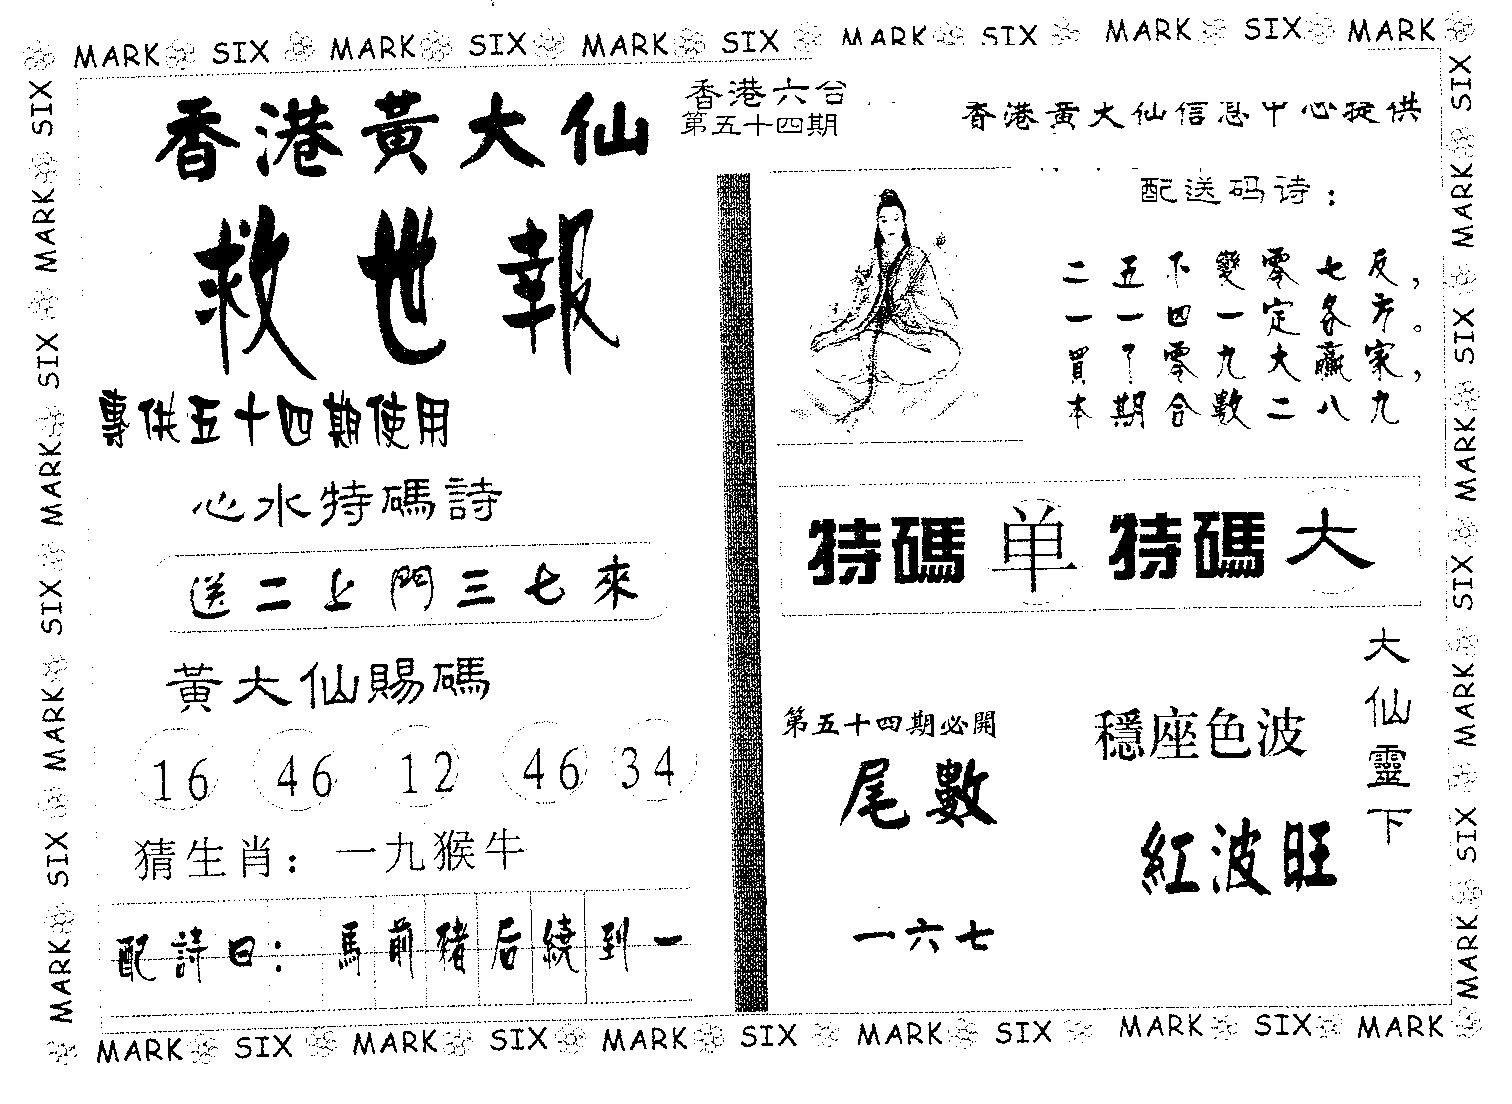 MARK SIX MARK SIX MARK SIX MARK SIX MARK SIX MARK
香港黃大仙
救世報
專供五十四期使用
心水特碼詩
送二上門三七來
黃大仙賜碼
16 46 12 46 34
猜生肖：一九猴牛
配詩曰：馬前豬后繞到一
香港六合
第五十四期
香港黃大仙信息中心提供
配送码诗：
二五下變零七反，
一一四一定各方。
買了零九大贏家，
本期合數二八九
特碼 单 特碼 大
第五十四期必開
尾數
一六七
穩座色波
紅波旺
大仙靈下
MARK SIX MARK SIX MARK SIX MARK SIX MARK SIX MARK
SIX MARK SIX MARK SIX MARK SIX MARK
SIX MARK SIX MARK SIX MARK SIX MARK